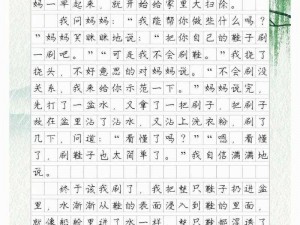 妈一早起来，就开始给家里大扫除。
我问妈妈：“我能帮你做些什么吗？
”妈妈笑眯眯地说：“把你自己的鞋子刷
一刷吧。”“可是我不会刷鞋。”我挠了
挠头，不好意思的对妈妈说。“不会刷没
关系，我来给你示范一下。”妈妈说完，
先打了一盆水，又拿了一把刷子，把刷子放
在水里沾了沾水，又沾上洗衣粉，刷了
几下，问道：“看懂了吗？”“嗯，看懂
了，刷鞋子也太简单了。”我自信满满地
说。
终于该我刷了，我把整只鞋子扔进盆
里，水渐渐从鞋的表面浸入到鞋的里面，
就像船舱里进了水一样，整只鞋都湿透了